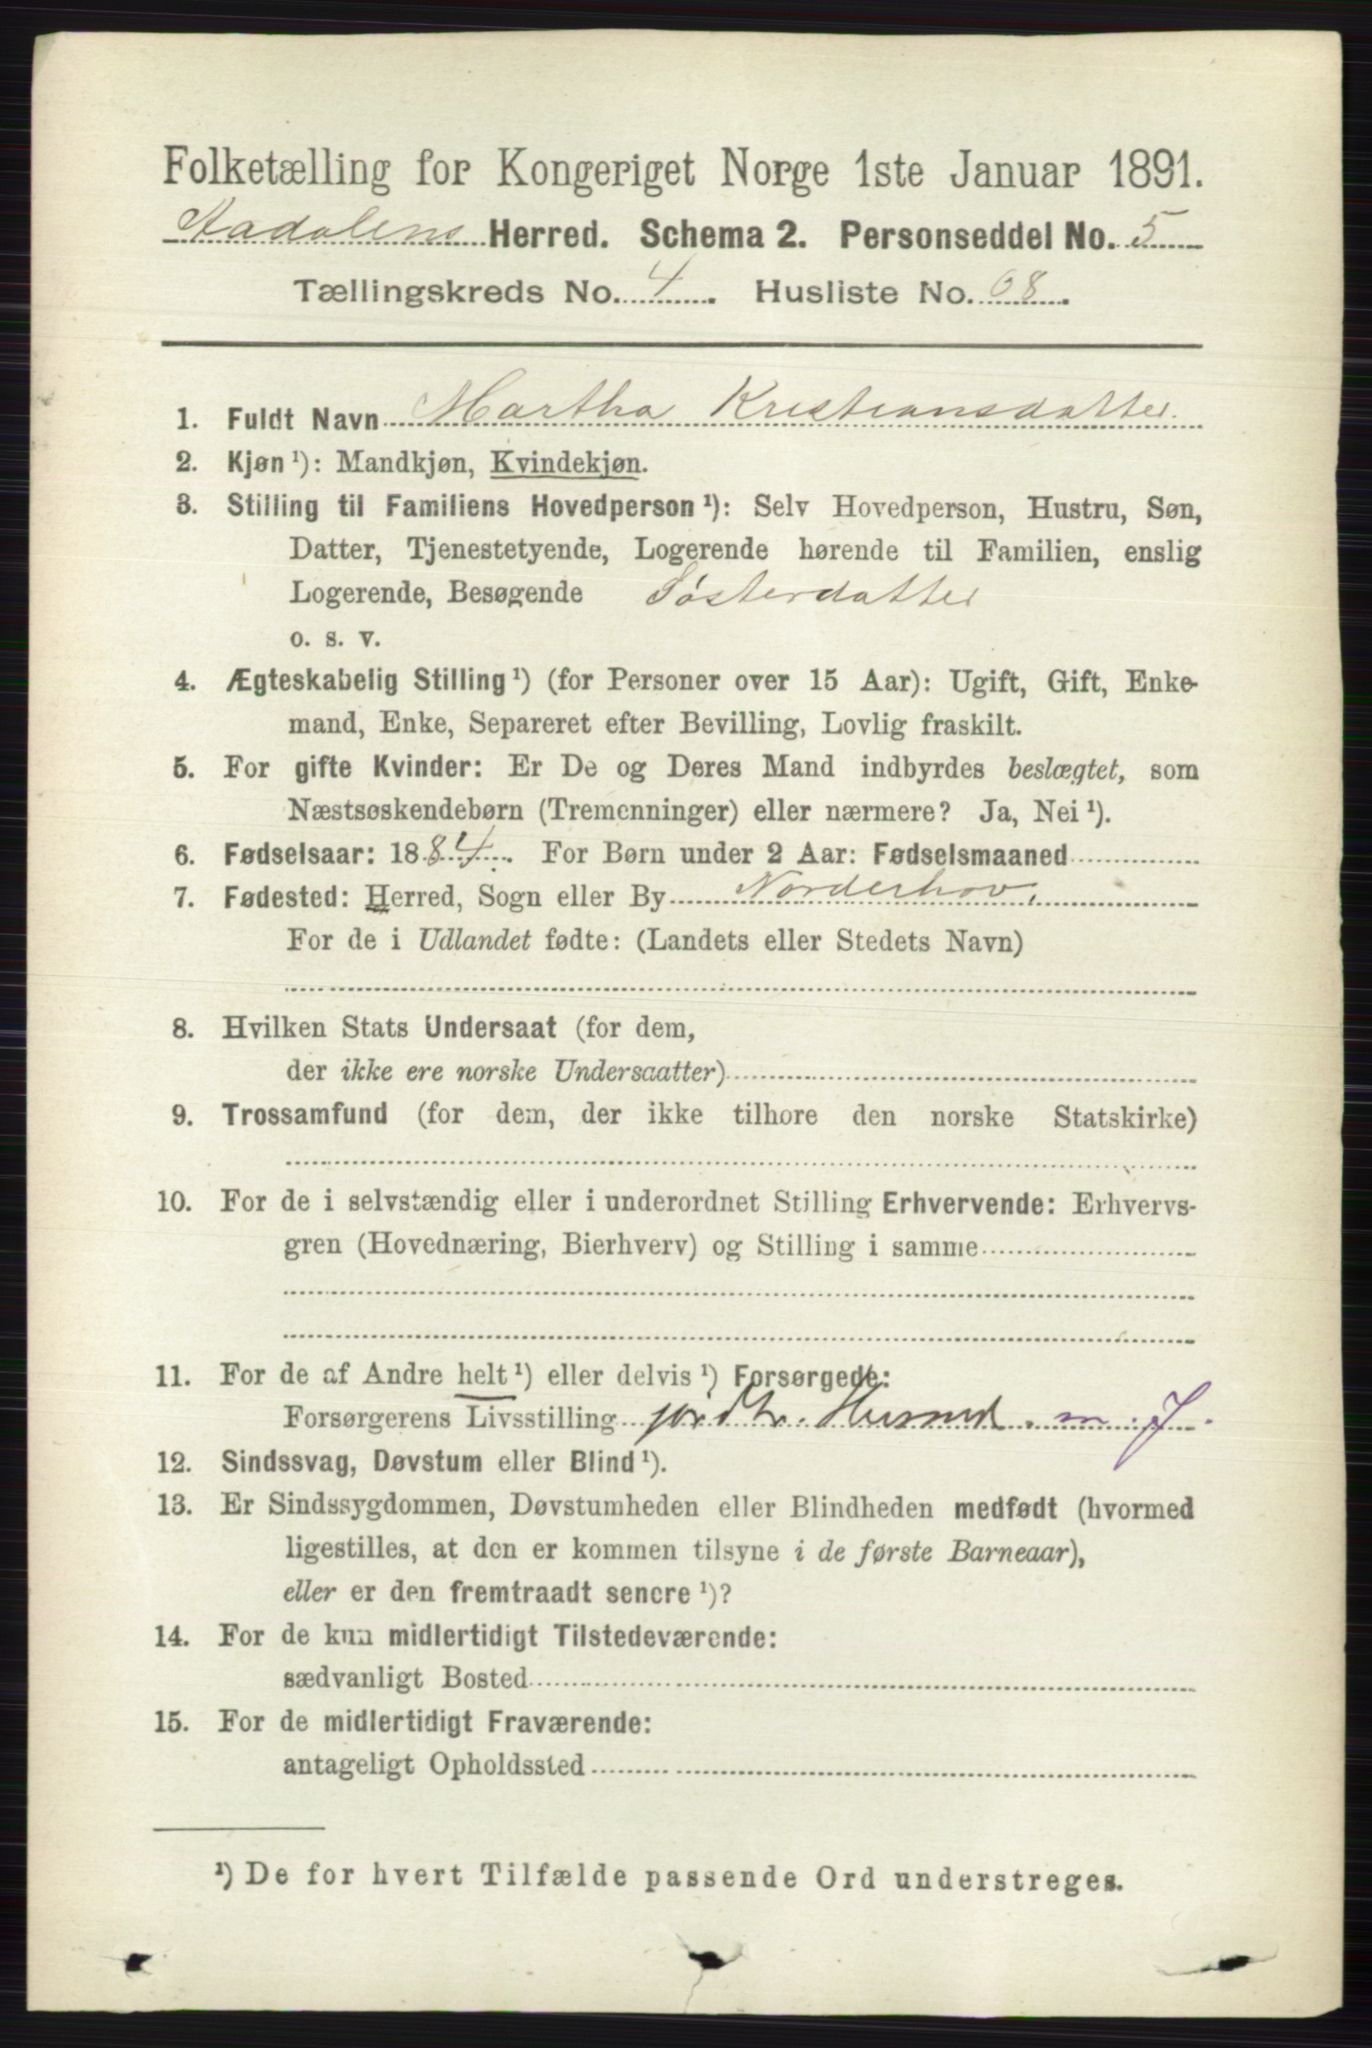 Folketælling for Kongeriget Norge 1ste Januar 1891.
Aadalens Herred. Schema 2. Personseddel No. 5
Tællingskreds No. 4. Husliste No. 68.
1. Fuldt Navn Martha Kristiansdatter.
2. Kjøn ¹): Mandkjøn, Kvindekjøn.
3. Stilling til Familiens Hovedperson ¹): Selv Hovedperson, Hustru, Søn,
Datter, Tjenestetyende, Logerende hørende til Familien, enslig
Logerende, Besøgende Søsterdatter
o. s. v.
4. Ægteskabelig Stilling ¹) (for Personer over 15 Aar): Ugift, Gift, Enke-
mand, Enke, Separeret efter Bevilling, Lovlig fraskilt.
5. For gifte Kvinder: Er De og Deres Mand indbyrdes beslægtet, som
Næstsøskendebørn (Tremenninger) eller nærmere? Ja, Nei ¹).
6. Fødselsaar: 1884. For Børn under 2 Aar: Fødselsmaaned
7. Fødested: Herred, Sogn eller By Norderhov.
For de i Udlandet fødte: (Landets eller Stedets Navn)
8. Hvilken Stats Undersaat (for dem,
der ikke ere norske Undersaatter)
9. Trossamfund (for dem, der ikke tilhøre den norske Statskirke)
10. For de i selvstændig eller i underordnet Stilling Erhvervende: Erhvervs-
gren (Hovednæring, Bierhverv) og Stilling i samme
11. For de af Andre helt ¹) eller delvis ¹) Forsørgede:
Forsørgerens Livsstilling Husmd. m. J.
12. Sindssvag, Døvstum eller Blind ¹).
13. Er Sindssygdommen, Døvstumheden eller Blindheden medfødt (hvormed
ligestilles, at den er kommen tilsyne i de første Barneaar),
eller er den fremtraadt senere ¹)?
14. For de kun midlertidigt Tilstedeværende:
sædvanligt Bosted
15. For de midlertidigt Fraværende:
antageligt Opholdssted
¹) De for hvert Tilfælde passende Ord understreges.